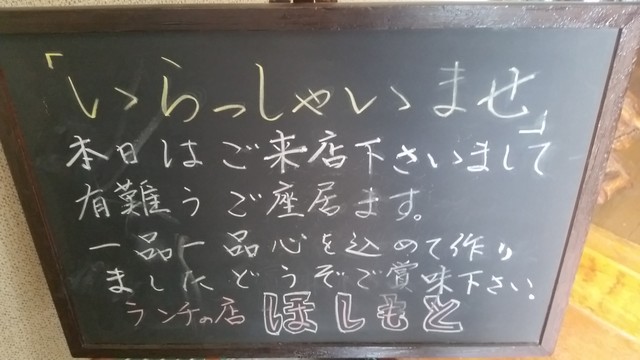 「いらっしゃいませ」
本日はご来店下さいまして
有難うご座居ます。
一品一品心を込めて作り
ましたどうぞご賞味下さい!
ランチの店 ほしもと